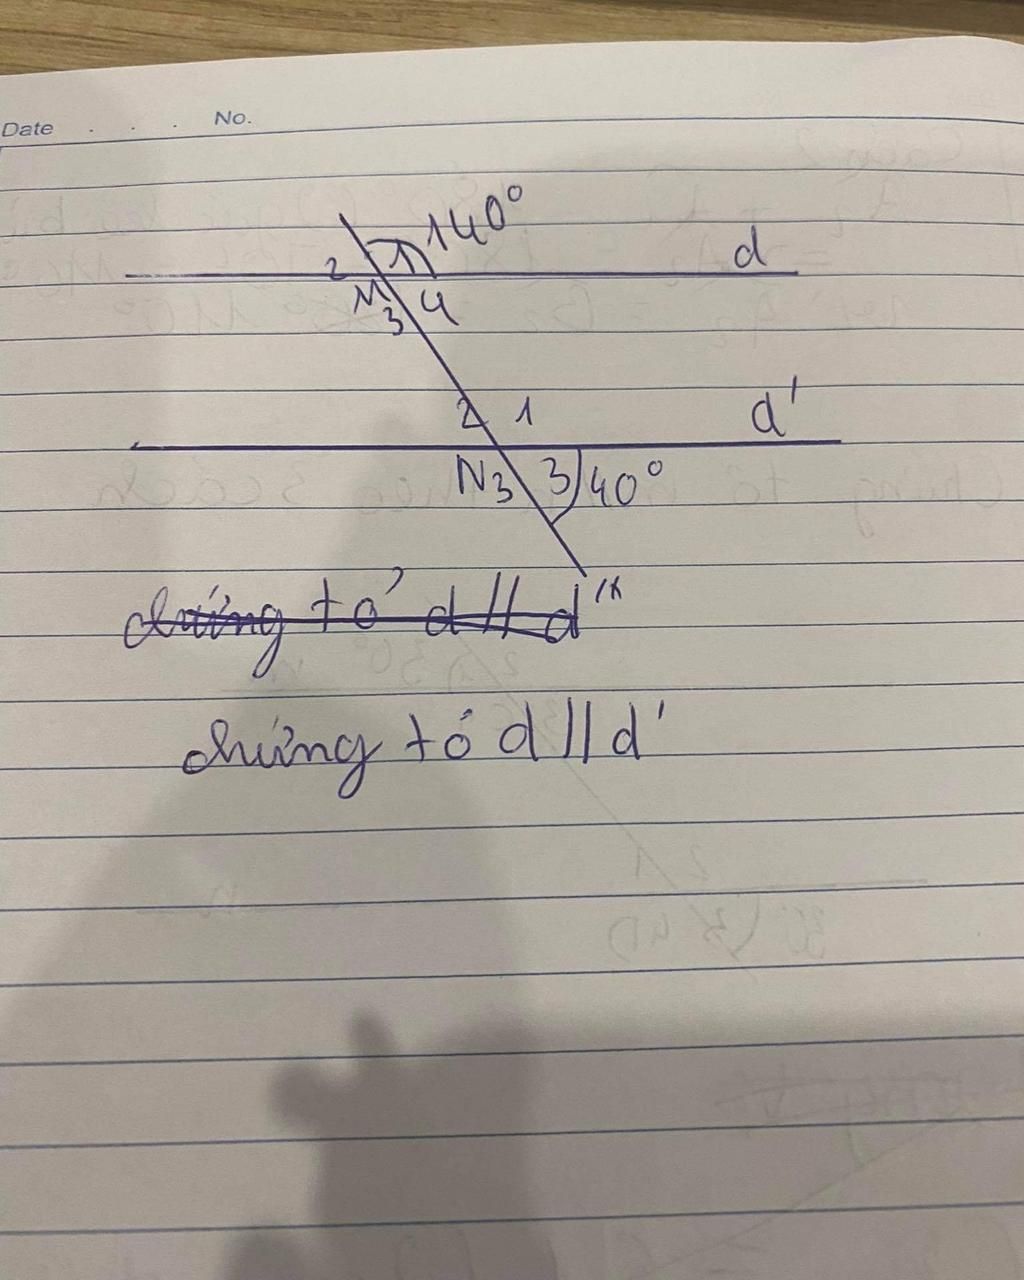 Date . . . No.
140°
2 1 d
M 4
3
2 1 d'
N 3 3 40°
chứng tỏ d // d'
chứng tỏ d // d'